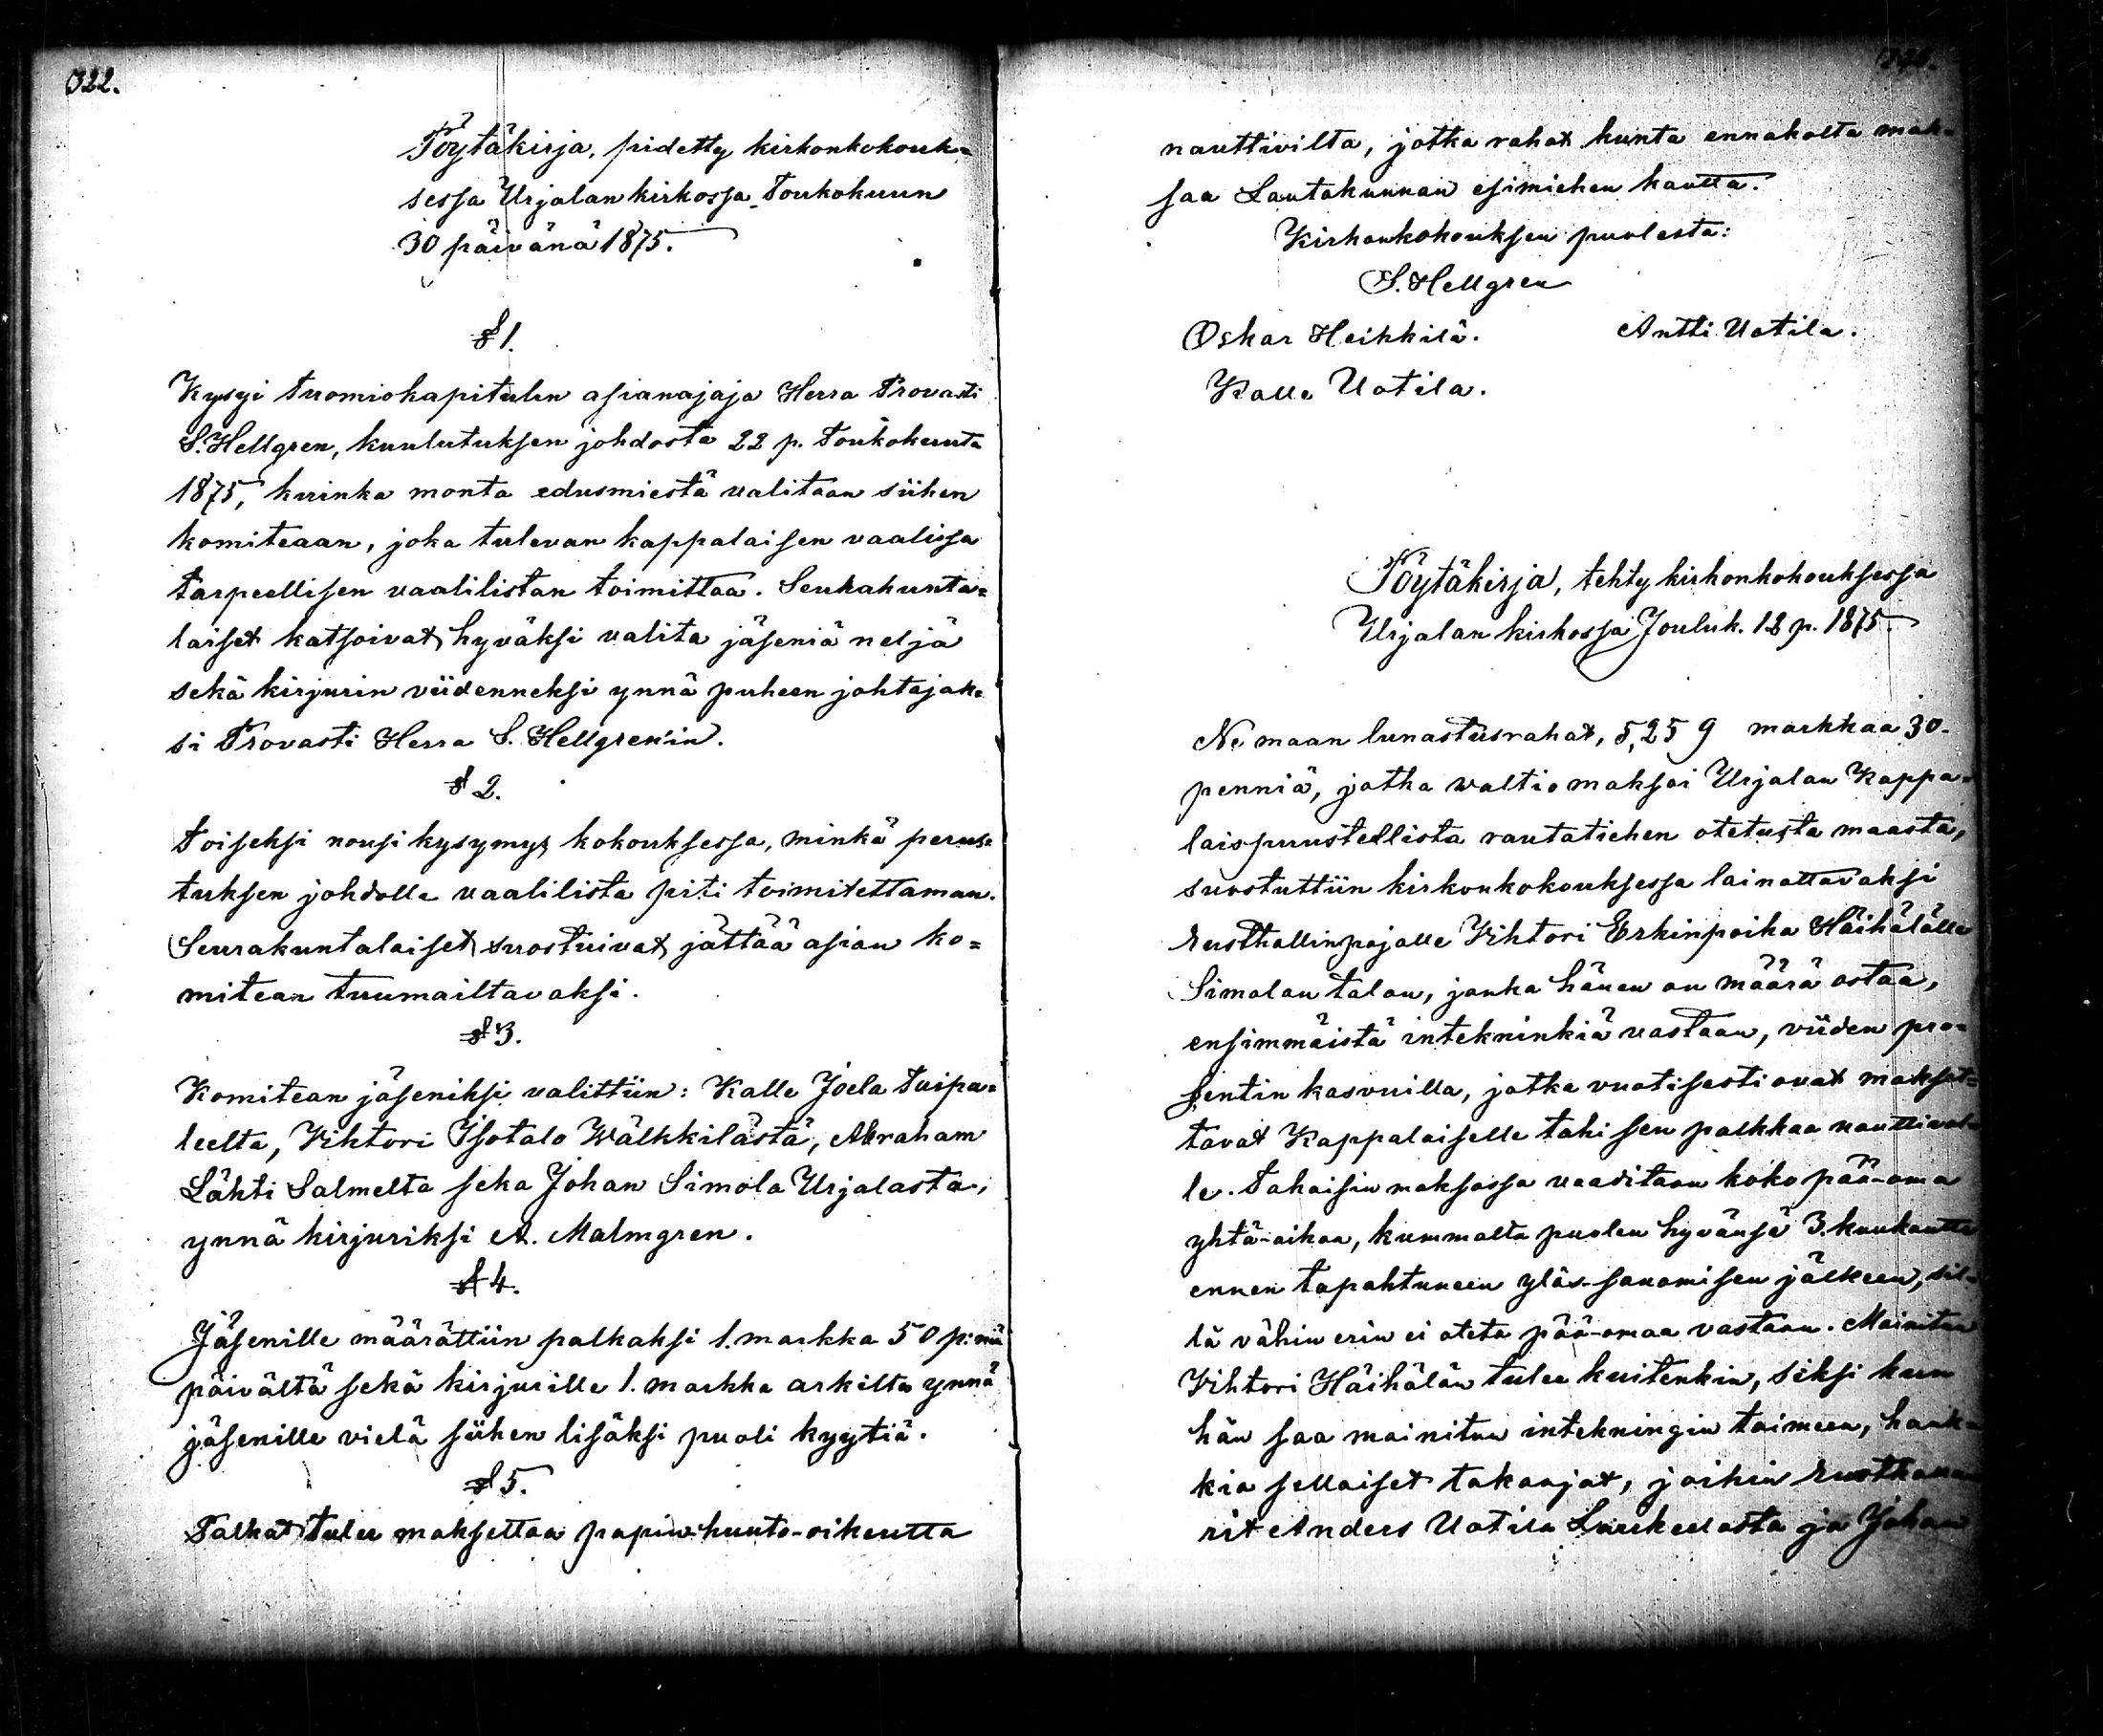 322.
Pöytäkirja, pidetty kirkonkokouk=
sessa Urjalan kirkossa Toukokuun
30 päivänä 1875.
§ 1.
Kysyi Tuomiokapitulin asianajaja Herra Provasti
S. Hellgren, kuulutuksen johdosta 22 p. Toukokuuta
1875, kuinka monta edusmiestä valitaan siihen
komiteaan, joka tulevan kappalaisen vaalissa
tarpeellisen vaalilistan toimittaa. Seurakunta=
laiset katsoivat hyväksi valita jäseniä neljä
sekä kirjurin viidenneksi ynnä puheen johtajak=
si Provasti Herra S. Hellgren'in.
§ 2.
Toiseksi nousi kysymys kokouksessa, minkä perus=
tuksen johdolla vaalilista piti toimitettaman.
Seurakuntalaiset suostuivat jättää asian ko=
mitean tuumailtavaksi.
§ 3.
Komitean jäseniksi valittiin: Kalle Joela Taipa=
leelta, Vihtori Isotalo Wälkkilästä, Abraham
Lähti Salmelta seka Johan Simola Urjalasta,
ynnä kirjuriksi A. Malmgren.
§ 4.
Jäsenille määrättiin palkaksi 1. markka 50 p:niä
päivältä sekä kirjurille 1. markka arkilta ynnä
jäsenille vielä siihen lisäksi puoli kyytiä.
§ 5.
Palkat tulee maksettaa papin-kunto-oikeutta
nauttivilta, jotka rahat kunta ennakolta mak=
saa Lautakunnan esimiehen kautta.
Kirkonkokouksen puolesta:
S. Hellgren
Oskar Heikkilä. Antti Uotila.
Kalle Uotila.
Pöytäkirja, tehty kirkonkokouksessa
Urjalan kirkossa Jouluk. 12 p. 1875.
Ne maan lunastusrahat, 5,259 markkaa 30.
penniä, jotka waltio maksoi Urjalan Kappa=
laispuustellista rautatiehen otetusta maasta,
suostuttiin kirkonkokouksessa lainattavaksi
Rusthallinpojalle Vihtori Erkinpoika Häihälälle
Simolan talon, jonka hänen on määrä ostaa,
ensimmäistä intekninkiä vastaan, viiden pro=
sentin kasvuilla, jotka vuotisesti ovat makset=
tavat Kappalaiselle tahi sen palkkaa nauttival=
le. Takaisin maksossa vaaditaan koko pää-oma
yhtä-aikaa, kummalta puolen hyvänsä 3. kuukautta
ennen tapahtuneen ylös-sanomisen jälkeen, sil=
lä vähin erin ei oteta pää-omaa vastaan. Mainitun
Vihtori Häihälän tulee kuitenkin, siksi kuin
hän saa mainitun intekningin toimeen, hank=
kia sellaiset takaajat, joihin
rit Anders Uotila Laukeelasta ja Johan